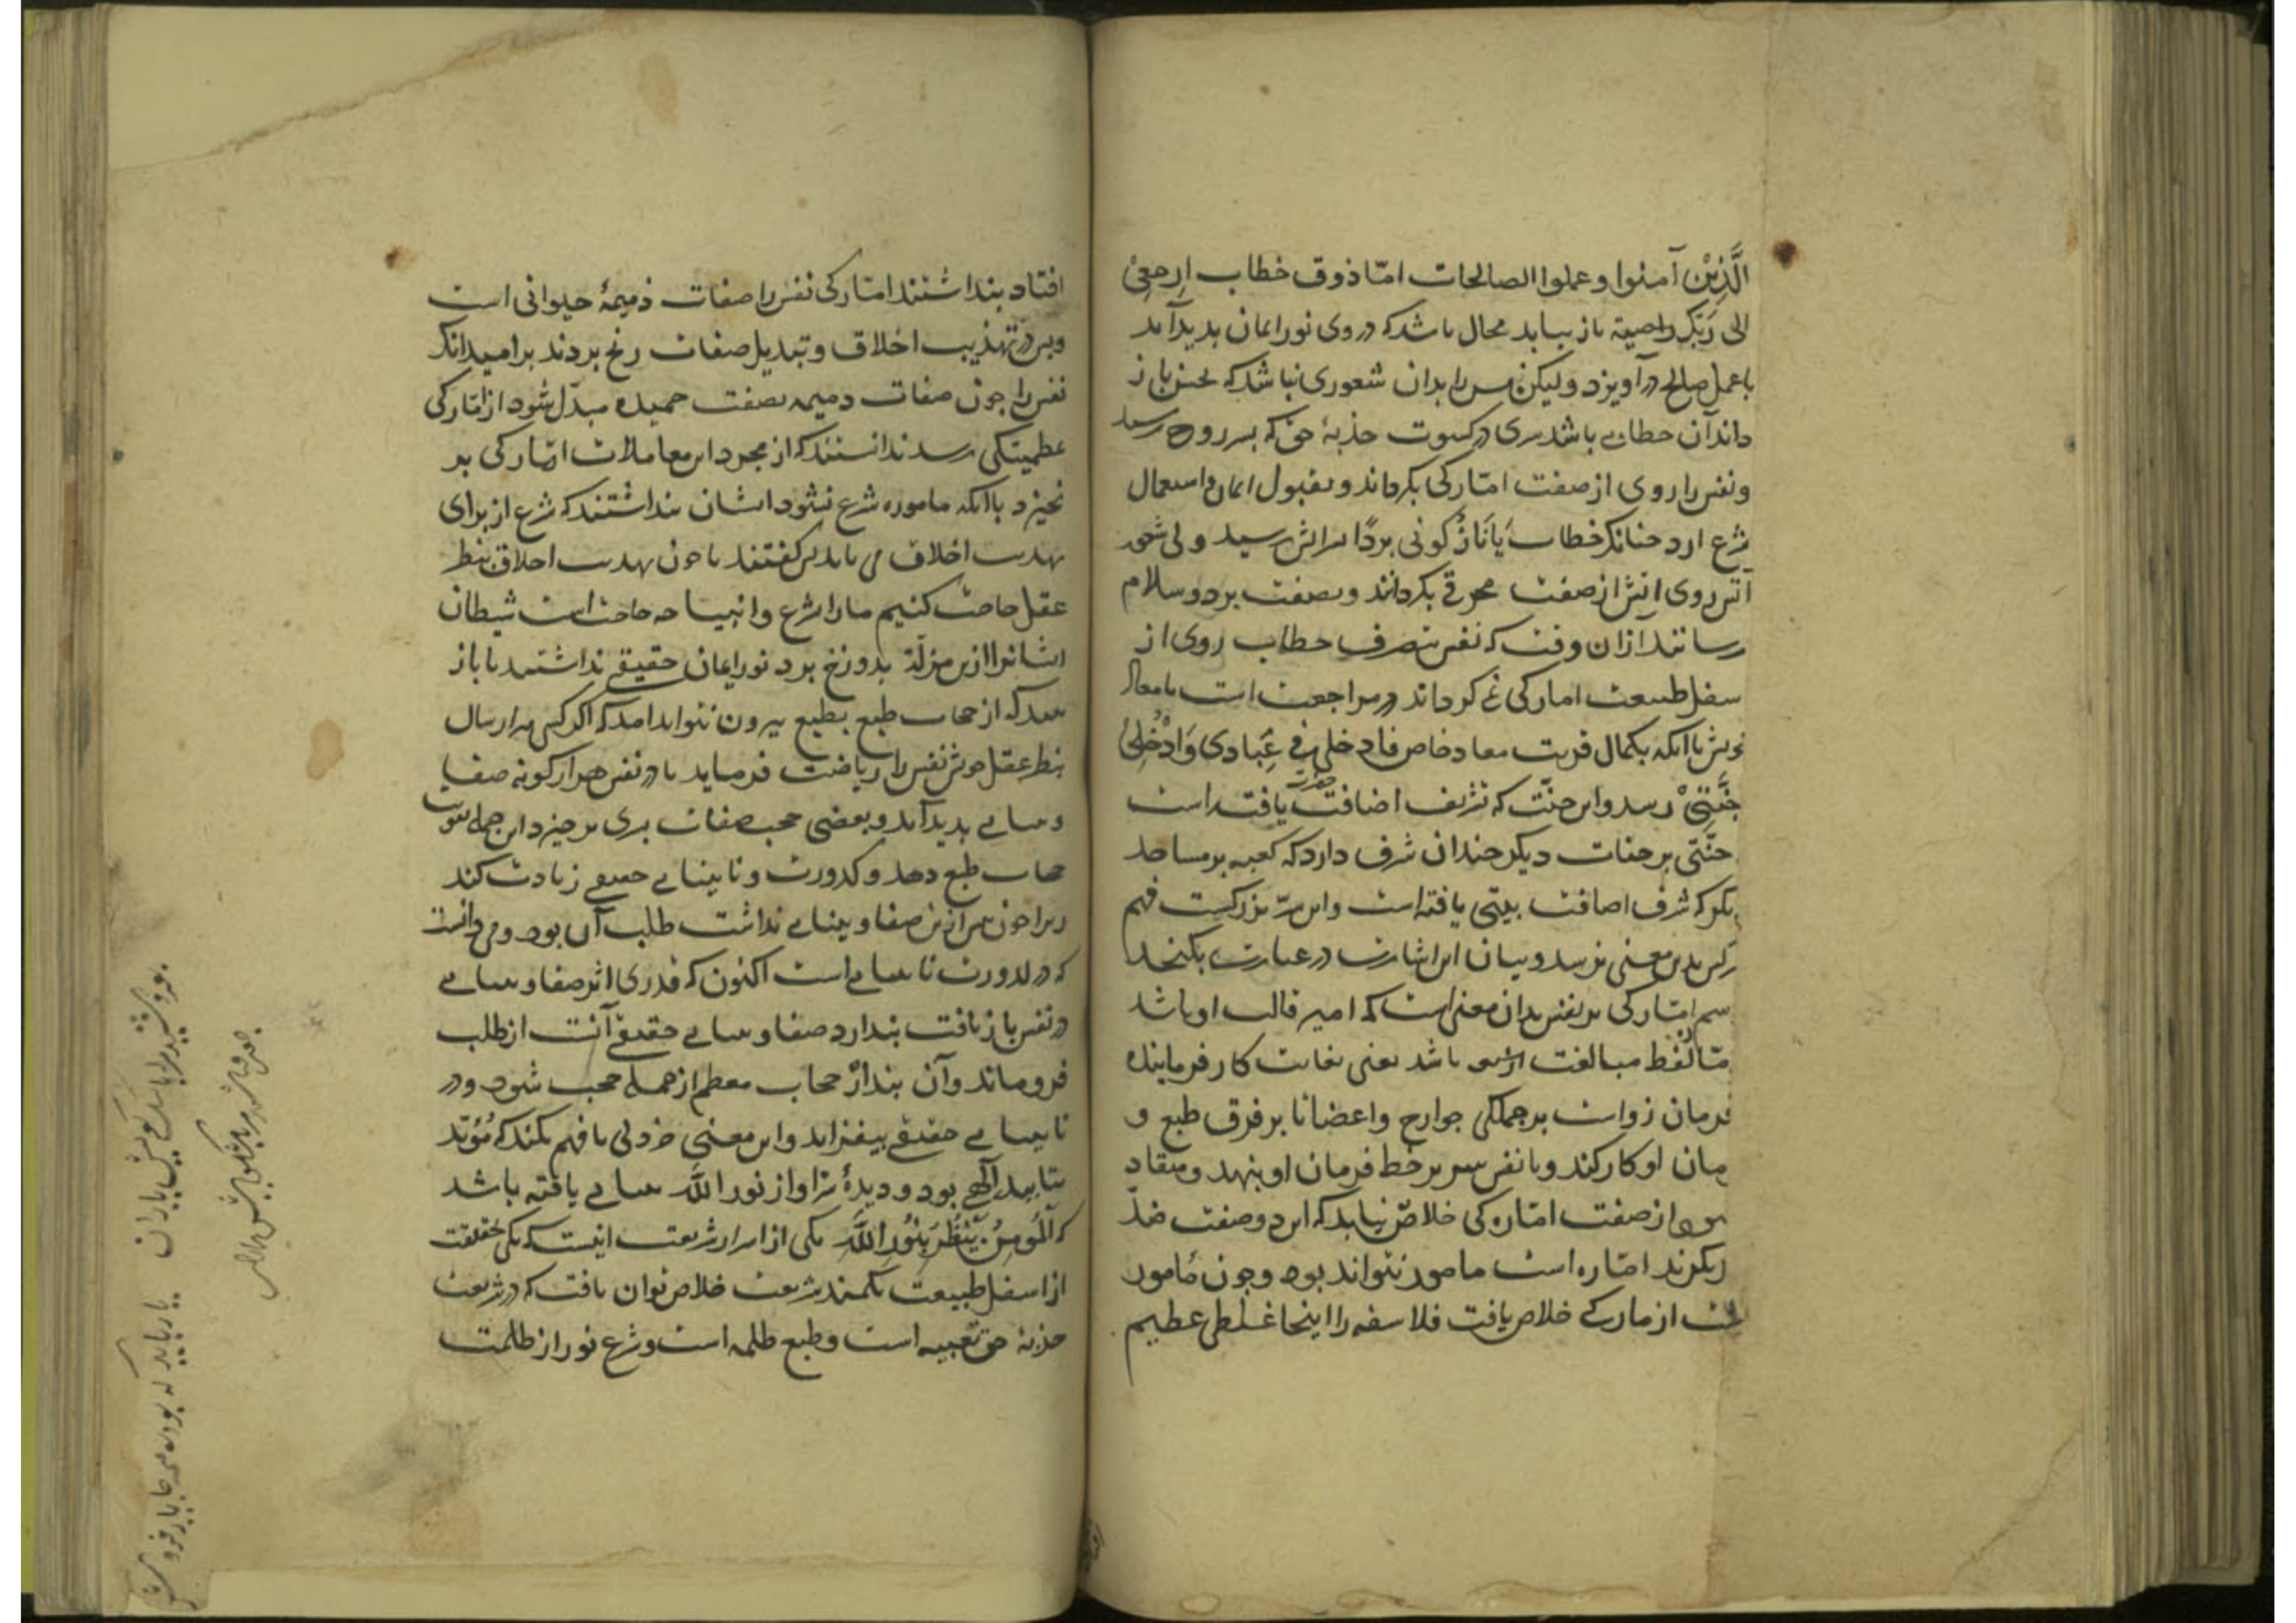 الَّذِیْنَ آمنوا وعملوا الصالحات امّا ذوق خطاب اِرجِعِیْ
الی رَبّکِ راضیة باز بیابد محال باشد که در وی نور ایمان بدید آید
با عمل صالح در آویزد ولیکن سر را بدان شعوری نباشد که بحسّ باز
داند آن خطابی باشد سری در کسوت جذبهٔ حق که بسر روح رسد
ونفس را روی از صفت امّارکی بکرداند و بقبول ایمان و استعمال
شرع آرد چنانک خطاب یَانَارُ کُونی بردًا بر آتش رسید و لی شعور
آتش روی آتش از صفت محرقی بکرداند وبصفت برد و سلام
رسانند از آن وقت که نفس بتصرف خطاب روی از
سفل طبیعت امارکی می کرداند در مراجعت است با معاد
خویش تا آنکه بکمال قربت معاد خاص فادخلی فی عِبَادی وَادْخُلِیْ
جَنَّتِیْ رسد و این جنّت که تشریف اضافت حضرت یافته است
جنّتی بر جنات دیکر چندان شرف دارد که کعبه بر مساجد
دیکر که شرف اضافت بیتی یافته است و این سرّ بزرکیست فهم
هرکس بدین معنی نرسد و بیان این اشارت در عبارت بکنجد
اسم امّارکی بر نفس بدان معنی است که امیر قالب او باشد
امّا لفظ مبالغت از بهر باشد یعنی بغایت کار فرماینده
فرمان رواست بر جملکی جوارح و اعضا تا بر فرق طبع و
فرمان او کار کند و تا نفس سر بر خط فرمان او بنهد و منقاد
نشود از صفت امّاره کی خلاص نیابد که این دو صفت ضدّ
یکدیکرند امّاره است مامور نتواند بود و چون مامور
کشت از مارکی خلاص یافت فلاسفه را اینجا غلطی عظیم
افتاد بنداشتند امّارکی نفس را صفات ذمیمهٔ حیوانی است
وبس در تهذیب اخلاق و تبدیل صفات رنج بردند بر امید آنک
نفس را چون صفات ذمیمه بصفت حمیده مبدّل شود از امّارکی
بمطمئنکی رسد ندانستند که از مجرد این معاملات امّارکی بر
نخیزد تا آنکه ماموره شرع نشود ایشان بنداشتند که شرع از برای
تهذیب اخلاق می باید بس کفتند ما چون تهذیب اخلاق بنظر
عقل حاصل کنیم ما را بشرع و انبیا چه حاجت است شیطان
ایشانرا ازین مزلّة بدوزخ برد نور ایمان حقیقی نداشتند تا باز
بینند که از حجاب طبع بطبع بیرون نتواند آمد که اکر کسی هزار سال
بنظر عقل خویش نفس را ریاضت فرماید تا در نفس هزار کونه صفا
و بینایی بدید آید و بعضی حجب صفات بشری بر خیزد این جمله تقویت
حجاب طبع دهد و کدورت و نابینایی حقیقی زیادت کند
زیرا چون بیش ازین صفا و بینایی نداشت طلب آن بود و می دانست
که در کدورت نابینایی است اکنون که قدری اثر صفا و بینایی
در نفس باز یافت بندارد صفا و بینایی حقیقی آنست از طلب
فرو ماند و آن بندار حجاب معظم از جمله حجب شود و در
نابینایی حقیقی بیفزاید و این معنی هر دلی نا فهم بکند که مُؤیّد
بتایید الٰهی بود و دیدهٔ سرّ او از نور اللّٰه بینایی یافته باشد
که اَلْمُؤمِنُ یَنْظُرُ بِنُورِ اللّٰهِ یکی از اسرار شریعت اینست که بحقیقت
از اسفل طبیعت بکمند شریعت خلاص توان یافت که در شریعت
جذبهٔ حق تعبیه است و طبع ظلمه است و شرع نور از ظلمت